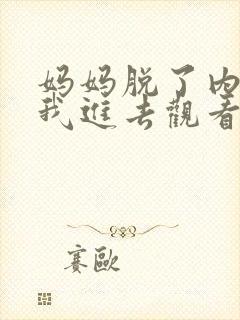 妈妈脱了内
我进去观看
赛欧